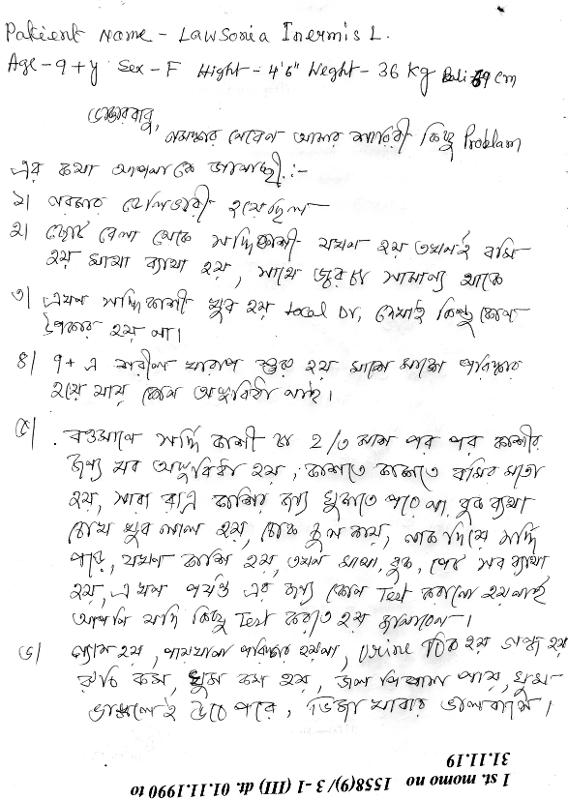 Patient Name - Lawsonia Inermis L.
Age - 9 + y Sex - F Hight - 4'6" Weght - 36 kg 69 cm
ডাক্তারবাবু,
নমস্কার নেবেন আমার শারিরী কিছু Problam
এর কথা আপনাকে জানাচ্ছি :-
১। নরমার ডেলিভারী হয়েছিল
২। ছোট বেলা থেকে সর্দ্দি কাশী যখন হয় তখনই বমি
হয় মাথা ব্যাথা হয়, সাথে জ্বর ও সামান্য থাকে
৩। এখন সর্দ্দি কাশী খুব হয় local Dr, দেখাই কিন্তু কোন
উপকার হয় না।
৪। 9+ এ শরীল খারাপ শুরু হয় মাসে মাসে পরিষ্কার
হয়ে যায় কোন অসুবিধা নাই।
৫। বর্তমানে সর্দ্দি কাশী ও 2/৩ মাস পর পর কাশীর
জন্য সব অসুবিধা হয়, কাশতে কাশতে বমির মতো
হয়, সারা রাত্র কাশির জন্য ঘুমাতে পারে না, বুক ব্যথা
চোখ খুব লাল হয়, চোক ফুলে যায়, নাক দিয়ে সর্দ্দি
পড়ে, যখন কাশি হয়, তখন মাথা, বুক, পেট সব ব্যাথা
হয়, এখন পর্যন্ত এর জন্য কোন Test করানো হয় নাই
আপনি যদি কিছু Test করাতে হয় জানাবেন।
৬। গ্যাস হয়, পায়খানা পরিষ্কার হয়না, Urine ঠিক হয় গন্ধ হয়
রুচি কম, ঘুম কম হয়, জল পিপাসা পায়, ঘুম
ভাঙ্গলেই উঠে পরে, ভিজা খাবার ভালবাসে।
1 st. momo no 1558(9)/ 3 -1 (III) dt. 01.11.1990 to
31.11.19